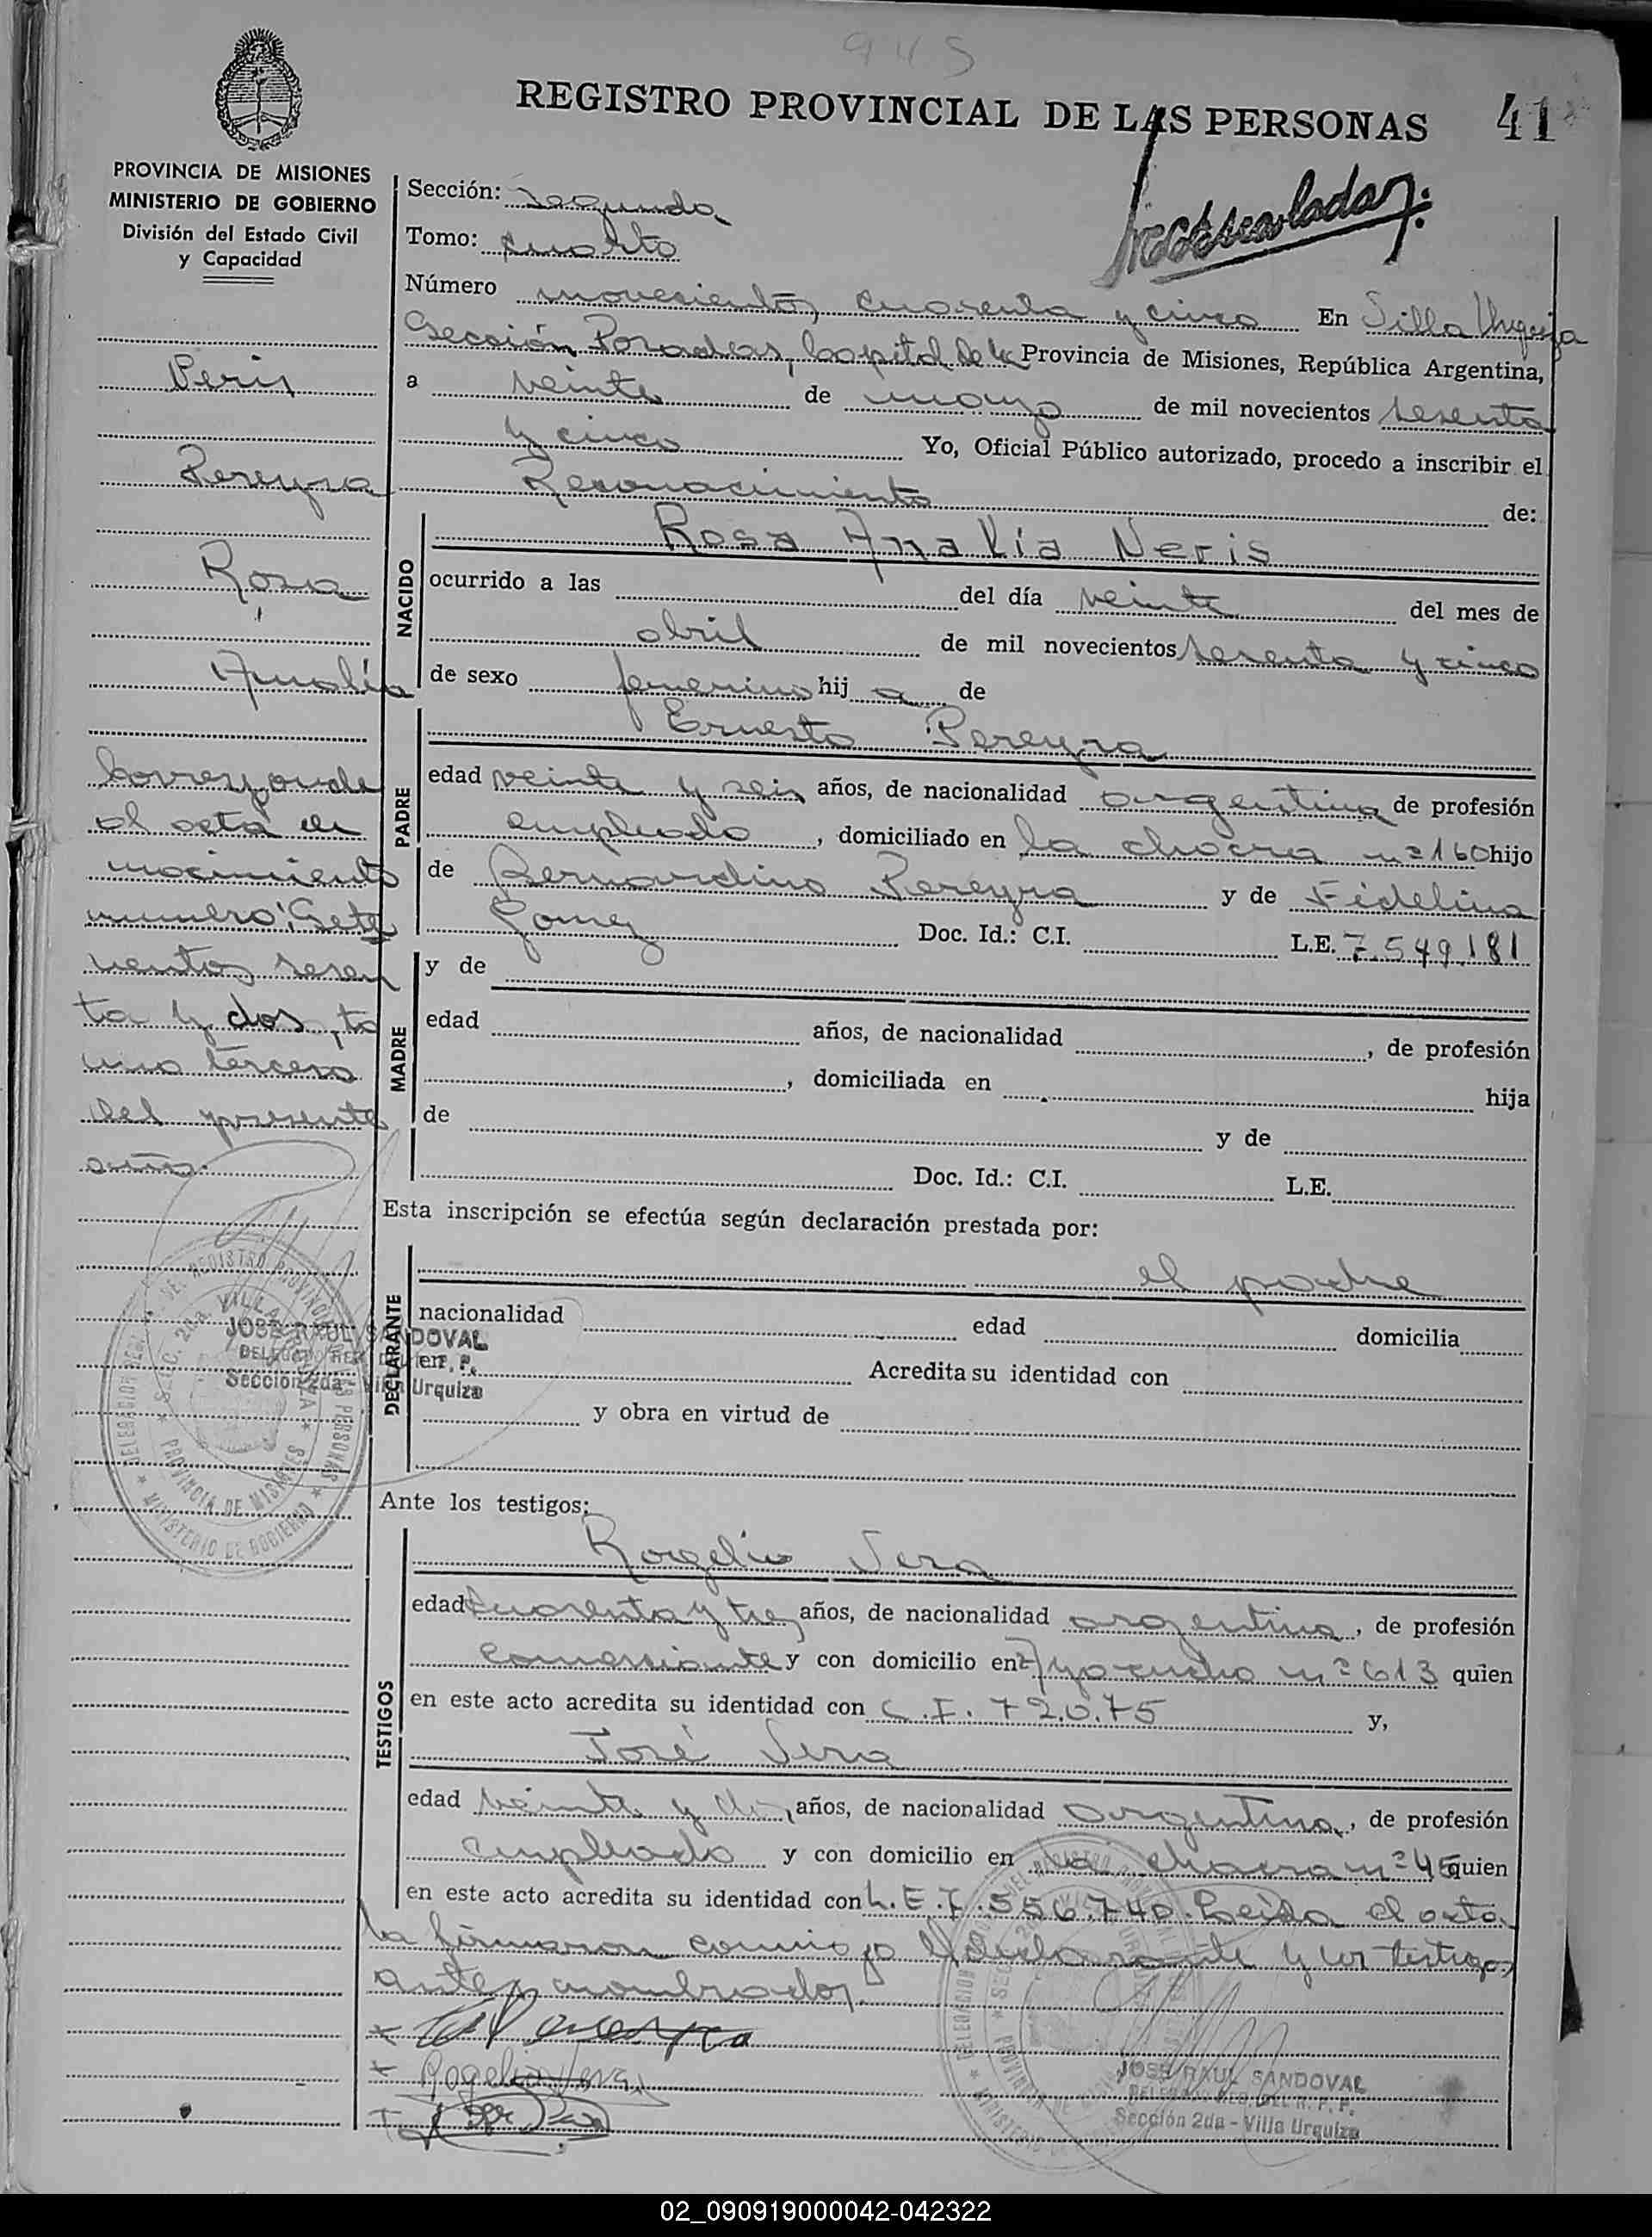 945
REGISTRO PROVINCIAL DE LAS PERSONAS 41
PROVINCIA DE MISIONES
MINISTERIO DE GOBIERNO
División del Estado Civil
y Capacidad
Sección: Segunda
Tomo: cuarto
Número novecientos cuarenta y cinco En Villa Urquiza
Sección Posadas, Capital de la Provincia de Misiones, República Argentina,
a veinte de mayo de mil novecientos sesenta
y cinco Yo, Oficial Público autorizado, procedo a inscribir el
Reconocimiento de:
NACIDO
Rosa Analia Neris
ocurrido a las del día veinte del mes de
abril de mil novecientos sesenta y cinco
de sexo femenino hij a de
PADRE
Ernesto Pereyra
edad veinte y seis años, de nacionalidad argentina de profesión
empleado, domiciliado en la chacra nº 160 hijo
de Bernardino Pereyra y de Fidelina
Gomez Doc. Id.: C.I. L.E. 7.549.181
MADRE
y de
edad años, de nacionalidad , de profesión
, domiciliada en hija
de y de
Doc. Id.: C.I. L.E.
Esta inscripción se efectúa según declaración prestada por:
DECLARANTE
el padre
nacionalidad edad domicilia
do en Acredita su identidad con
y obra en virtud de
Ante los testigos:
TESTIGOS
Rogelio Vera
edad cuarenta y tres años, de nacionalidad argentina, de profesión
comersiante y con domicilio en Ayacucho nº 613 quien
en este acto acredita su identidad con C.I. 72.075 y,
José Vera
edad veinte y dos, años, de nacionalidad argentina, de profesión
empleado y con domicilio en la chacra nº 45 quien
en este acto acredita su identidad con L.E. 7.556.740. Leida el acta
la firmaron conmigo el declarante y los testigos
antes nombrados.
Rogelio Vera
Pereyra
Rosa
Amalia
Corresponde
al acta de
nacimiento
numero: Sete
cientos sesen
ta y dos, to
mo tercero
del presente
año.
JOSE RAUL SANDOVAL
Sección 2da - Villa Urquiza
JOSE RAUL SANDOVAL
DELEGADO REG. DEL R. P. P.
Sección 2da - Villa Urquiza
02_090919000042-042322